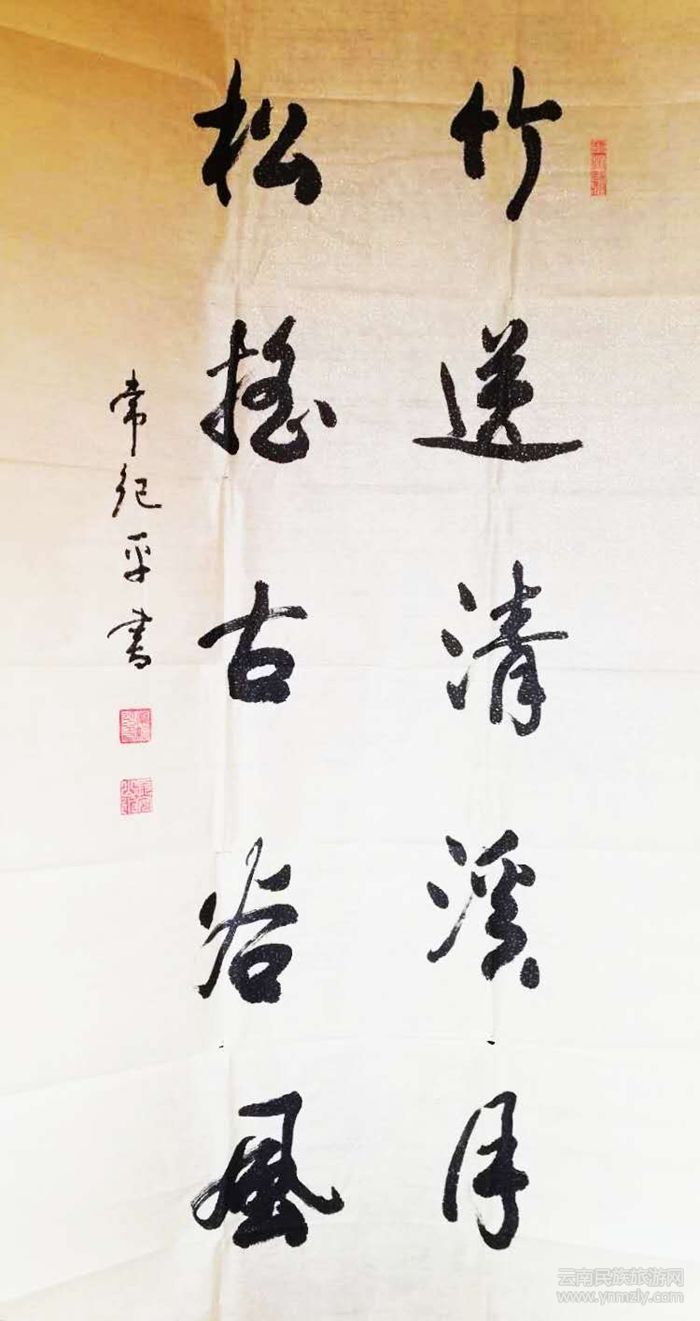 竹送清溪月
松摇古谷风
常纪平书
云南民族旅游网
www.ynmzly.com